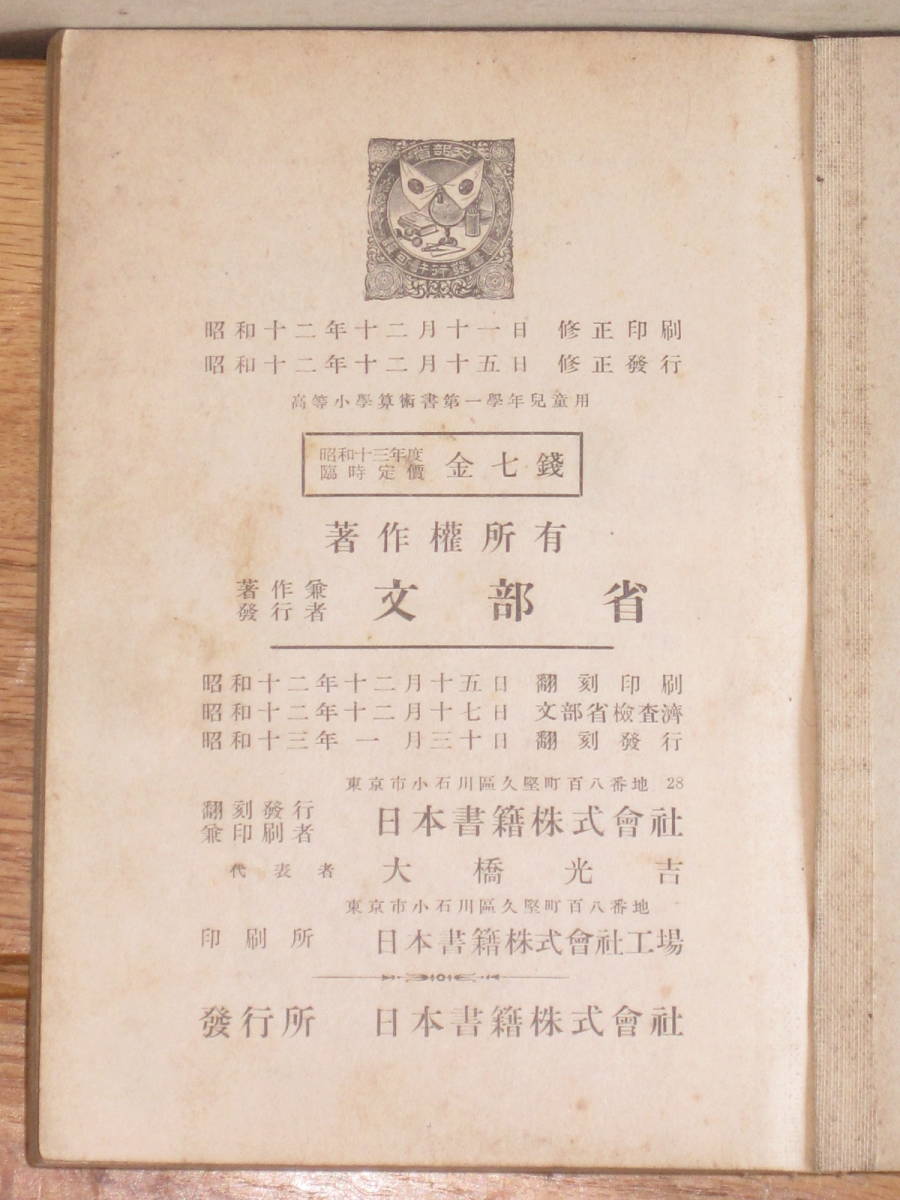 文部省
昭和十二年十二月十一日 修正印刷
昭和十二年十二月十五日 修正發行
高等小學算術書第一學年兒童用
昭和十三年度
臨時定價
金七錢
著作權所有
著作兼
發行者
文部省
昭和十二年十二月十五日 翻刻印刷
昭和十二年十二月十七日 文部省檢査濟
昭和十三年一月三十日 翻刻發行
東京市小石川區久堅町百八番地 28
翻刻發行
兼印刷者
日本書籍株式會社
代表者 大橋光吉
東京市小石川區久堅町百八番地
印刷所 日本書籍株式會社工場
發行所 日本書籍株式會社